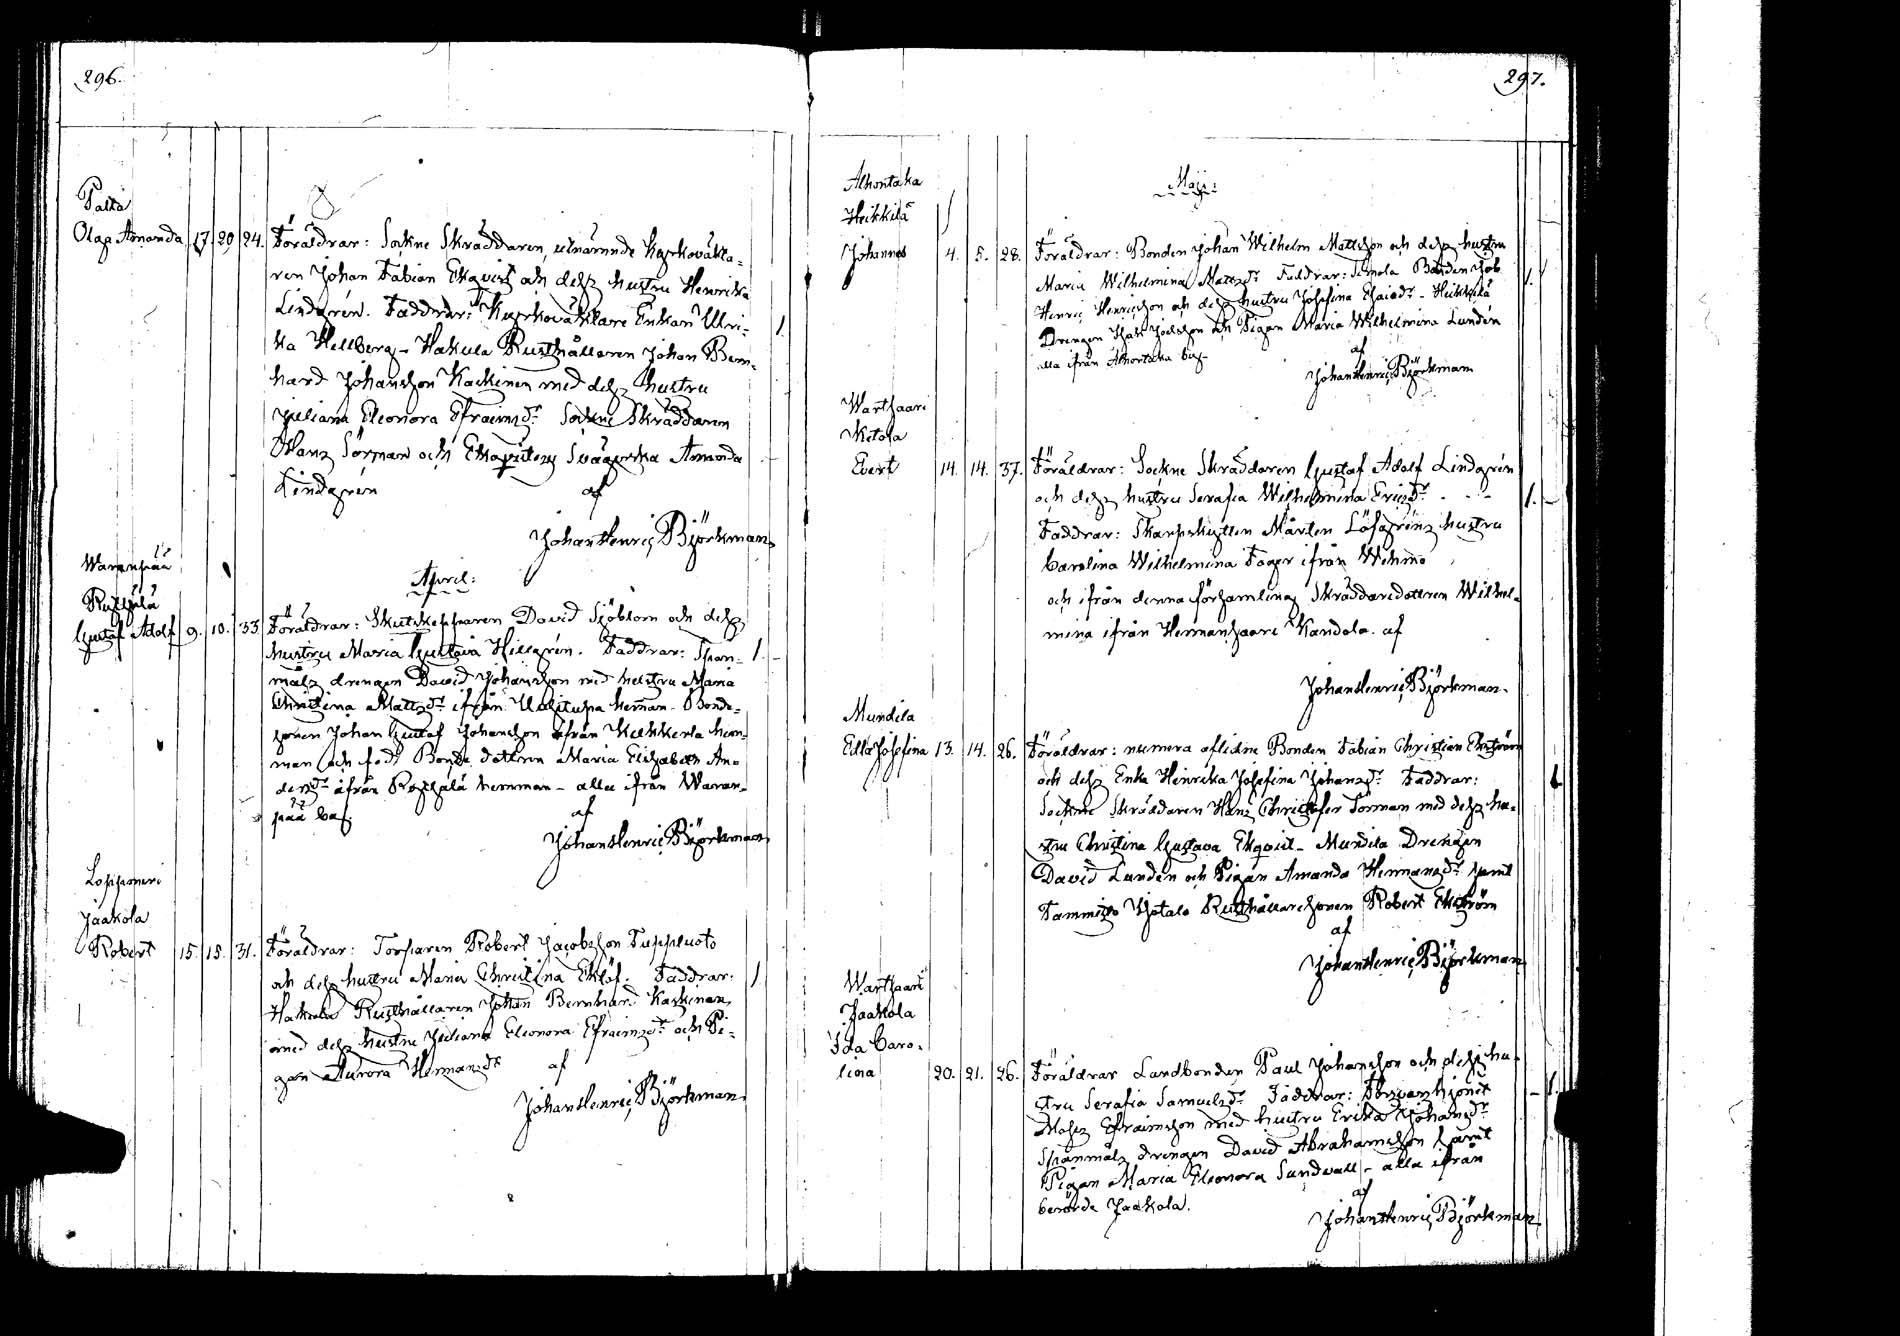 296.
Palta
Olga Amanda 17. 20. 24. Föräldrar: Sokne Skräddaren, utnämnde Kyrkovakta-
ren Johan Fabian Ekqvist och dess hustru Henrika
Lindgrén. Faddrar: Kyrkovaktare Enkan Ulri-
ka Hellberg - Hakula Rusthållaren Johan Bern-
hard Johansson Kaskinen med dess hustru
Juliana Eleonora Efraimsdr Sokne Skräddaren
Hans Sörman och Ekqvistens Svägerska Amanda
Lindgrén af
Johan Henric Björkman
1.
Waranpää
April:
Gustaf Adolf 9. 10. 33. Föräldrar: Skutskepparen David Sjöblom och dess
hustru Maria Gustava Hillgrén. Faddrar: Span-
måls drengen David Johansson med hustru Maria
Christina Mattsdr ifrån hemman - Bonde-
sonen Johan Gustaf Johansson ifrån hem-
man och född Bonde dottren Maria Elisabeth An-
dersdr ifrån hemman - alla ifrån Waran-
pää by. af
Johan Henric Björkman
1.
Loppmeri
Jaakola
Robert 15. 15. 31. Föräldrar: Torparen Robert Jacobsson Tuppluoto
och dess hustru Maria Christina Eklöf. Faddrar:
Hakula Rusthållaren Johan Bernhard Kaskinen
med dess hustru Juliana Eleonora Efraimsdr och Pi-
gan Aurora Hermansdr af
Johan Henric Björkman
1
297.
Alhontaka
Heikkilä
Maji:
Johannes 4. 5. 28. Föräldrar: Bonden Johan Wilhelm Mattsson och dess hustru
Maria Wilhelmina Matsdr Faddrar: Simola Bonden Job
Henric Henricsson och dess hustru Josefina Esaiedr - Heikkilä
Drengen Isak Joelsson och Pigan Maria Wilhelmina Lundén
alla ifrån Alhontaka by - af
Johan Henric Björkman
1.
Wartsaari
Ketola
Evert 14. 14. 37. Föräldrar: Sockne Skräddaren Gustaf Adolf Lindgrén
och dess hustru Serafia Wilhelmina Ericsdr - - -
Faddrar: Skarpskytten Mårten Löfgréns hustru
Carolina Wilhelmina Fager ifrån Wehmo
och ifrån denna församling Skräddaredottren Wilhel-
mina ifrån Hermansaari Kandola. af
Johan Henric Björkman.
1.
Mundila
Edla Josefina 13. 14. 26. Föräldrar: numera aflidne Bonden Fabian Christian Ekström
och dess Enka Henrika Josefina Johansdr Faddrar:
Sockne Skräddaren Hans Christofer Sörman med dess hu-
stru Christina Gustava Ekqvist - Mundila Drengen
David Lundén och Pigan Amanda Hermansdr samt
Tammisto Isotalo Rusthållaresonen Robert Ekström
af
Johan Henric Björkman
1.
Wartsaari
Jaakola
Ida Caro-
lina 20. 21. 26. Föräldrar Landbonden Paul Johansson och dess hu-
stru Serafia Samuelsdr Faddrar:
Moses Efraimsson med hustru Erika Johansdr
Spanmåls drengen David Abrahamsson samt
Pigan Maria Eleonora Sundvall - alla ifrån
berörde Jaakola. af
Johan Henric Björkman
1.